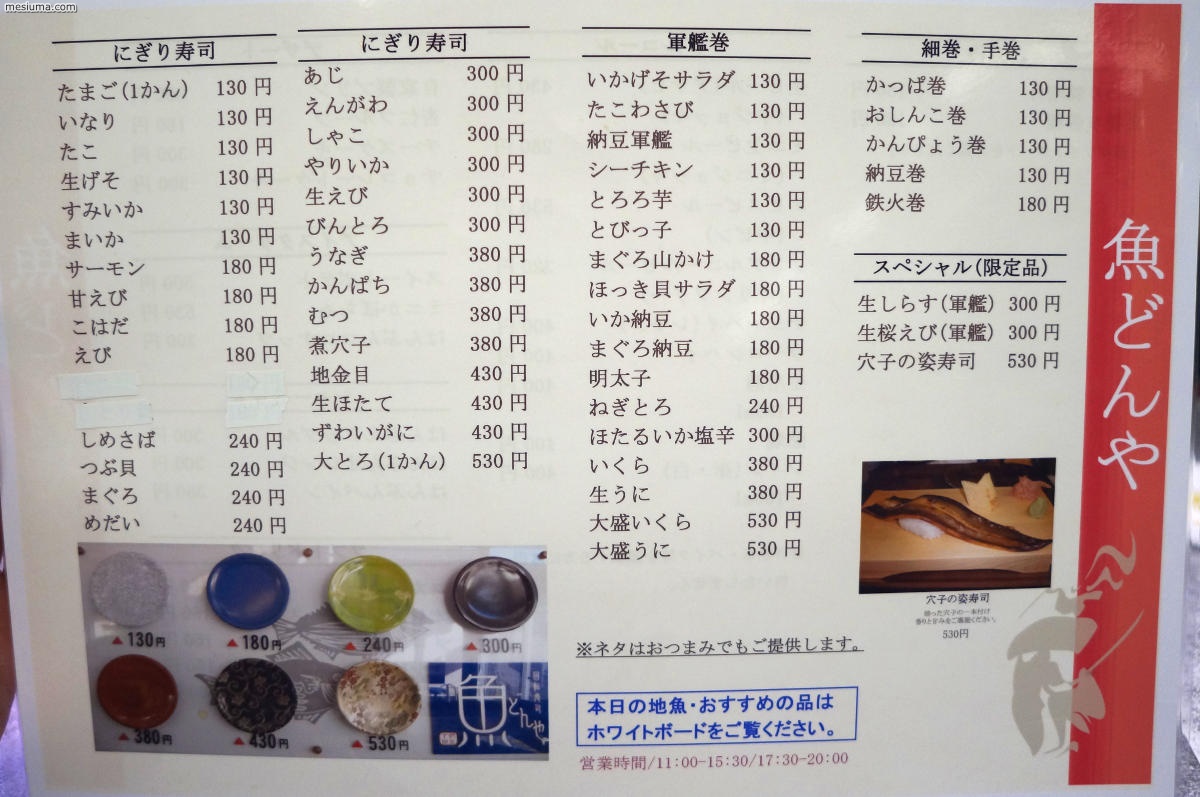 mesiuma.com
にぎり寿司
たまご(1かん) 130円
いなり 130円
たこ 130円
生げそ 130円
すみいか 130円
まいか 130円
サーモン 180円
甘えび 180円
こはだ 180円
えび 180円
しめさば 240円
つぶ貝 240円
まぐろ 240円
めだい 240円
にぎり寿司
あじ 300円
えんがわ 300円
しゃこ 300円
やりいか 300円
生えび 300円
びんとろ 300円
うなぎ 380円
かんぱち 380円
むつ 380円
煮穴子 380円
地金目 430円
生ほたて 430円
ずわいがに 430円
大とろ(1かん) 530円
▲130円
▲180円
▲240円
▲300円
▲380円
▲430円
▲530円
魚どんや
軍艦巻
いかげそサラダ 130円
たこわさび 130円
納豆軍艦 130円
シーチキン 130円
とろろ芋 130円
とびっ子 130円
まぐろ山かけ 180円
ほっき貝サラダ 180円
いか納豆 180円
まぐろ納豆 180円
明太子 180円
ねぎとろ 240円
ほたるいか塩辛 300円
いくら 380円
生うに 380円
大盛いくら 530円
大盛うに 530円
※ネタはおつまみでもご提供します。
本日の地魚・おすすめの品は
ホワイトボードをご覧ください。
営業時間/11:00-15:30/17:30-20:00
細巻・手巻
かっぱ巻 130円
おしんこ巻 130円
かんぴょう巻 130円
納豆巻 130円
鉄火巻 180円
スペシャル(限定品)
生しらす(軍艦) 300円
生桜えび(軍艦) 300円
穴子の姿寿司 530円
穴子の姿寿司
530円
魚どんや